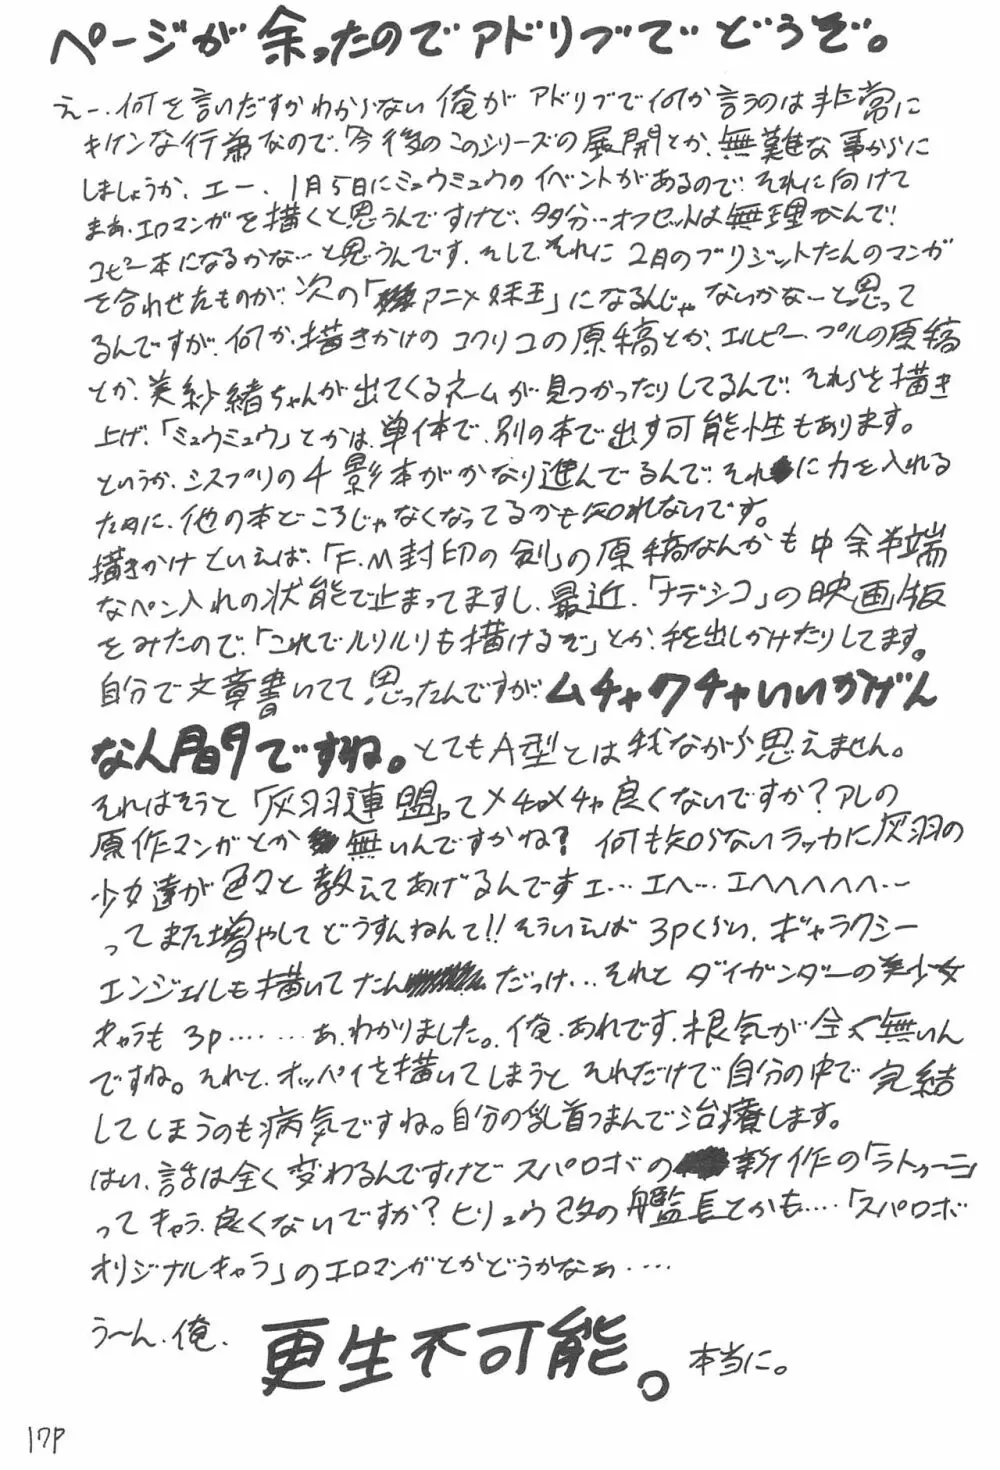 ページが余ったのでアドリブでどうぞ。
えー、何を言いだすかわからない俺がアドリブで何か言うのは非常に
キケンな行為なので、今後のこのシリーズの展開とか、無難な事からに
しましょうか、エー、1月5日にミュウミュウのイベントがあるので、それに向けて
まあ、エロマンガを描くと思うんですけど、多分…オフセットは無理なんで、
コピー本になるかな…と思うんです、そして、それに2月のブリジットたんのマンガ
を合わせたものが、次の「アニメ妹王」になるんじゃないかなーと思って
るんですが、何か、描きかけのコクリコの原稿とか、エルピー・プルの原稿
とか、美紗緒ちゃんが出てくるネームが見つかったりしてるんで、それらを描き
上げ、「ミュウミュウ」とかは、単体で、別の本で出す可能性もあります。
というか、シスプリの千影本がかなり進んでるんで、それに力を入れる
ために、他の本どころじゃなくなってるかも知れないです。
描きかけといえば、「F.M封印の剣」の原稿なんかも中余半端
なペン入れの状態で止まってますし、最近、「ナデシコ」の映画版
をみたので、「これでルリルリも描けるぞ」とか、手を出しかけたりしてます。
自分で文章書いてて思ったんですが、ムチャクチャいいかげん
な人間ですね。とてもA型とは我ながら思えません。
それはそうと「灰羽連盟」ってメチャメチャ良くないですか?アレの
原作マンガとか無いんですかね?何も知らないラッカに灰羽の
少女達が色々と教えてあげるんですェ…エヘ…エヘヘヘヘヘ…
ってまた増やしてどうすんねんて!!そういえば3Pくらい、ギャラクシー
エンジェルも描いてたんだっけ…それとダイガンダーの美少女
キャラも3P……あ、わかりました。俺、あれです、根気が全く無いん
ですね。それと、オッパイを描いてしまうとそれだけで自分の中で完結
してしまうのも病気ですね。自分の乳首つまんで治療します。
はい、話は全く変わるんですけどスパロボの新作の「ラトゥーニ」
ってキャラ、良くないですか?ヒリュウ改の艦長とかも…「スパロボ
オリジナルキャラ」のエロマンガとかどうかなぁ…
う〜ん、俺、更生不可能。本当に。
17P